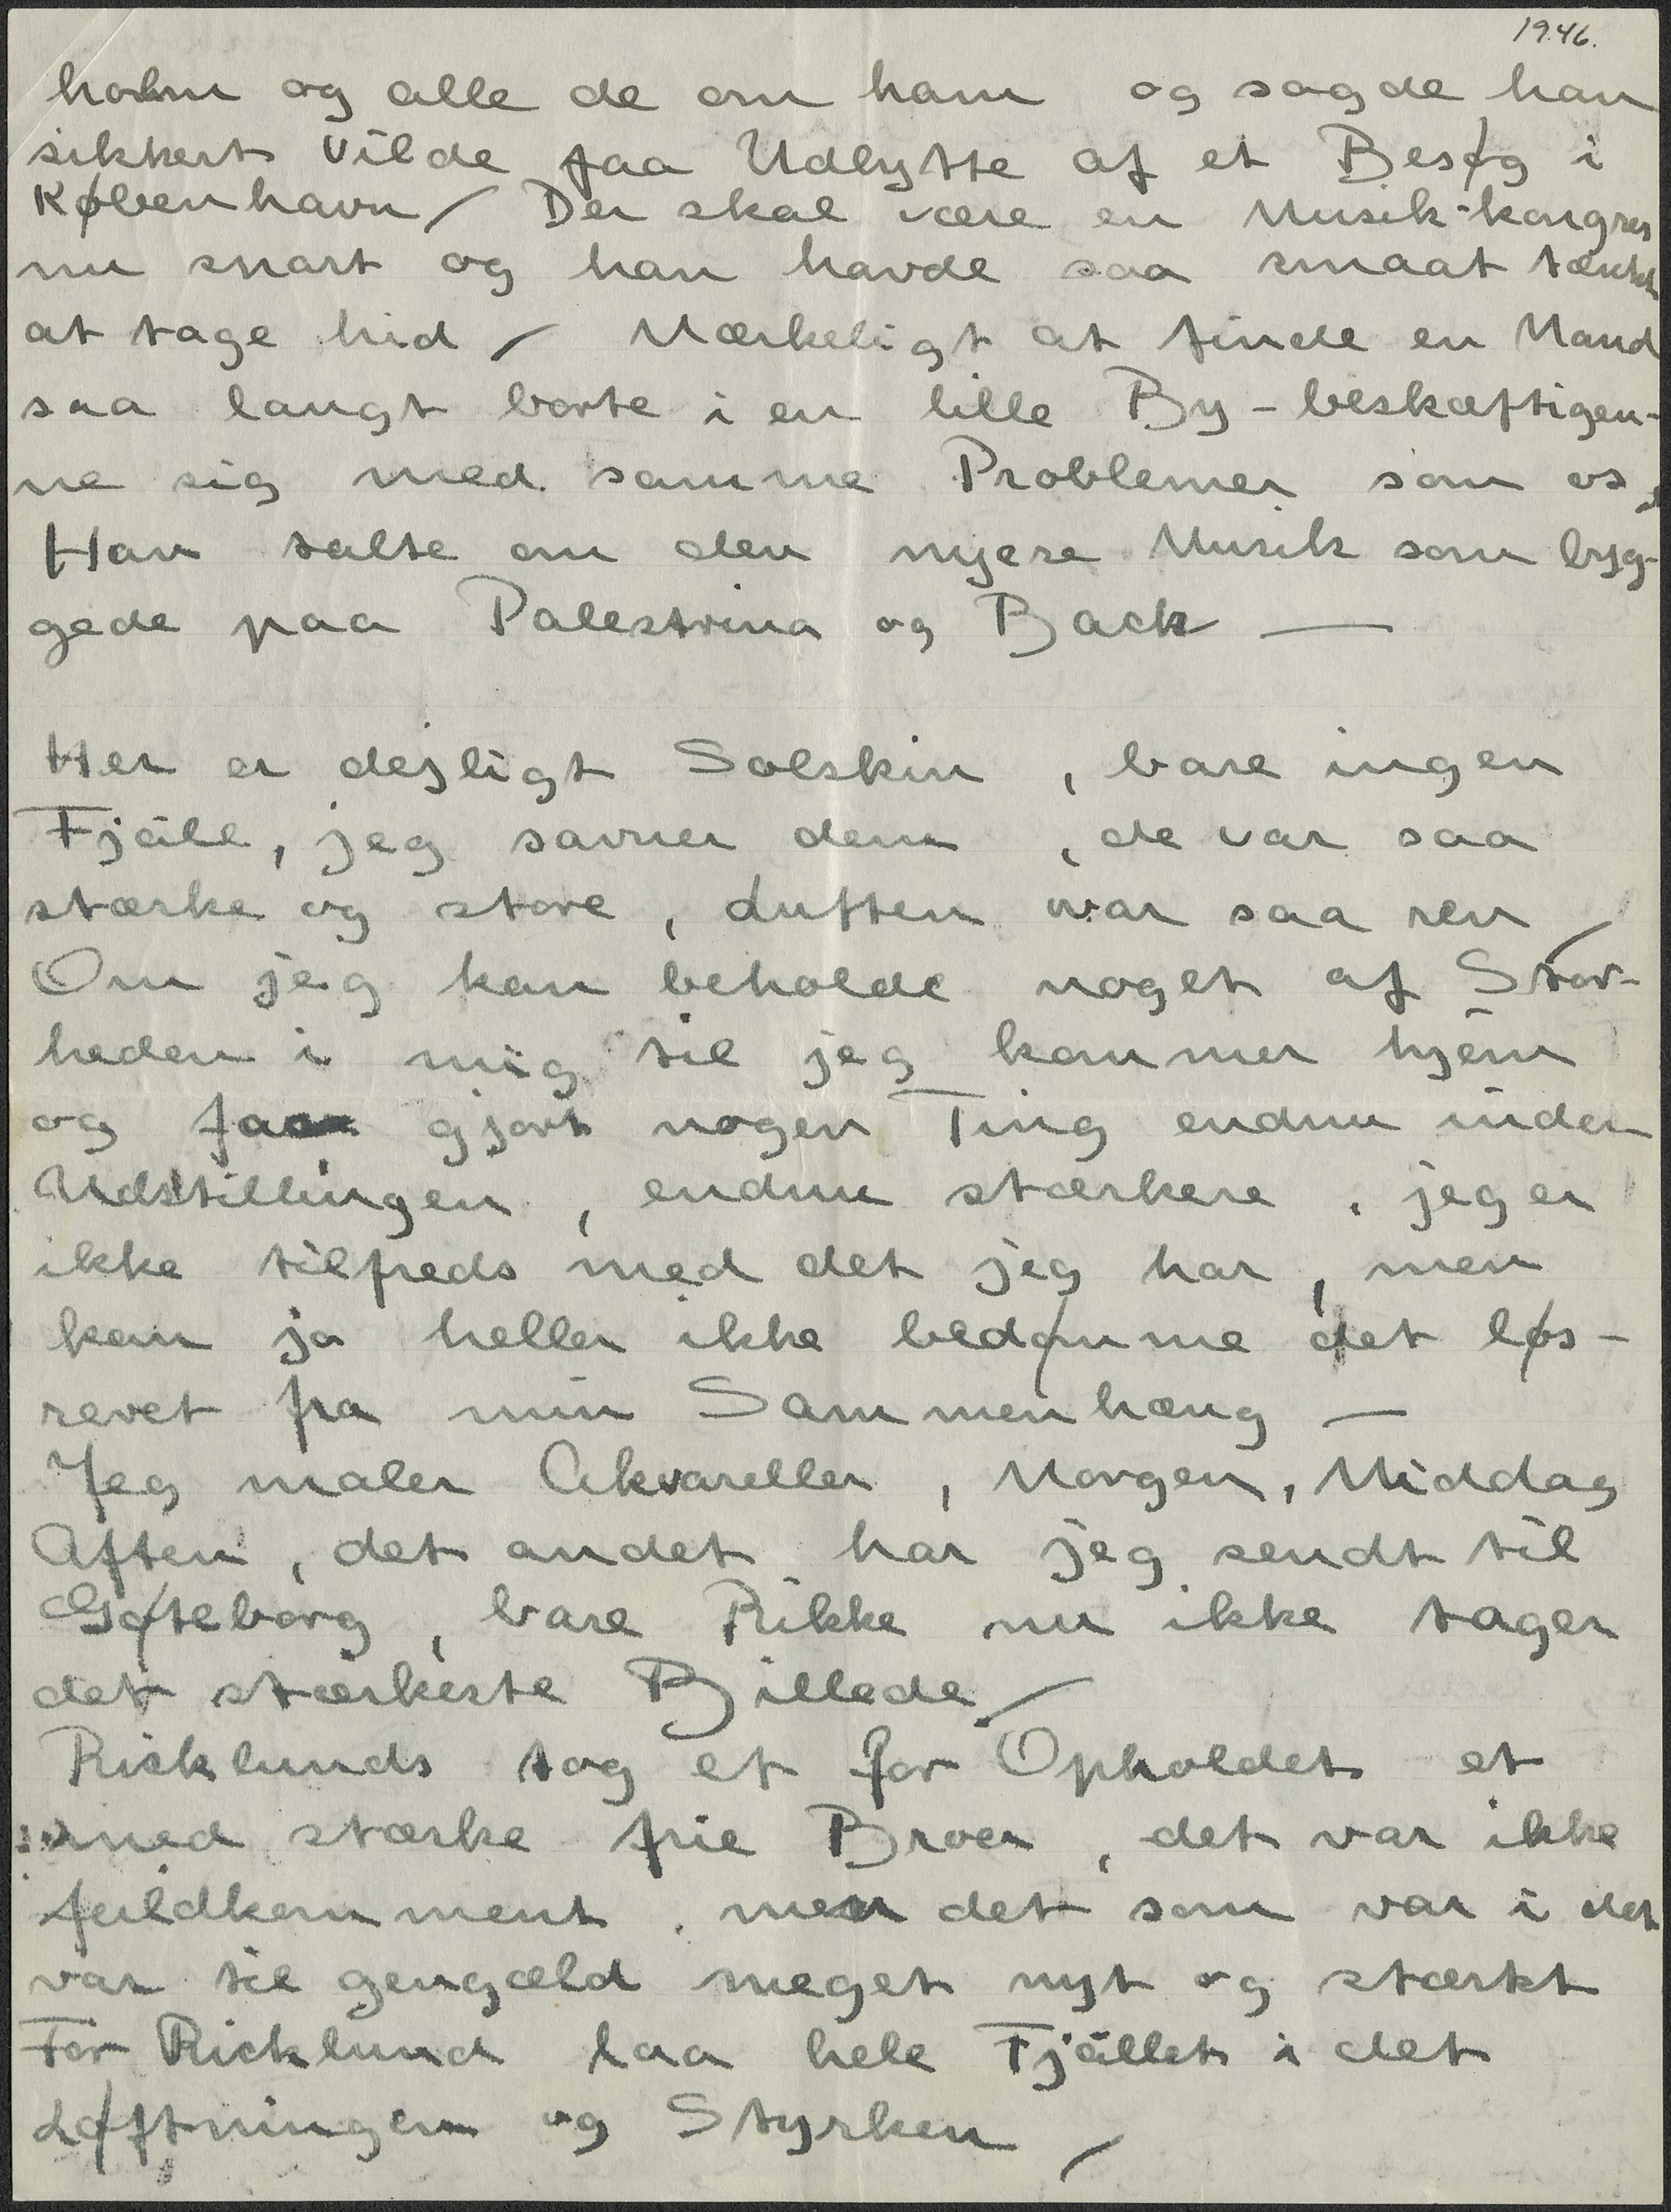 1946.
holm og alle de om ham og sagde han
sikkert vilde faa Udbytte af et Besøg i
København / Der skal være en Musik-kongres
nu snart og han havde saa smaat tænkt
at tage hid / Mærkeligt at finde en Mand
saa langt borte i en lille By - beskæftigen-
ne sig med samme Problemer som os,
Han talte om den nyere Musik som byg-
gede paa Palestrina og Back —
Her er dejligt Solskin, bare ingen
Fjäll, jeg savner dem, de var saa
stærke og store, Luften var saa ren /
Om jeg kan beholde noget af Stor-
heden i mig til jeg kommer hjem
og faa gjort nogen Ting endnu inden
Udstillingen, endnu stærkere, jeg er
ikke tilfreds med det jeg har, men
kan jo heller ikke bedømme det løs-
revet fra min Sammenhæng —
Jeg maler Akvareller, Morgen, Middag
Aften, det andet har jeg sendt til
Gøteborg, bare Rikke nu ikke tager
det stærkeste Billede /
Ricklunds tog et for Opholdet et
med stærke frie Broer, det var ikke
fuldkomment, men det som var i det
var til gengæld meget nyt og stærkt
For Ricklund laa hele Fjället i det
Løftningen og Styrken /